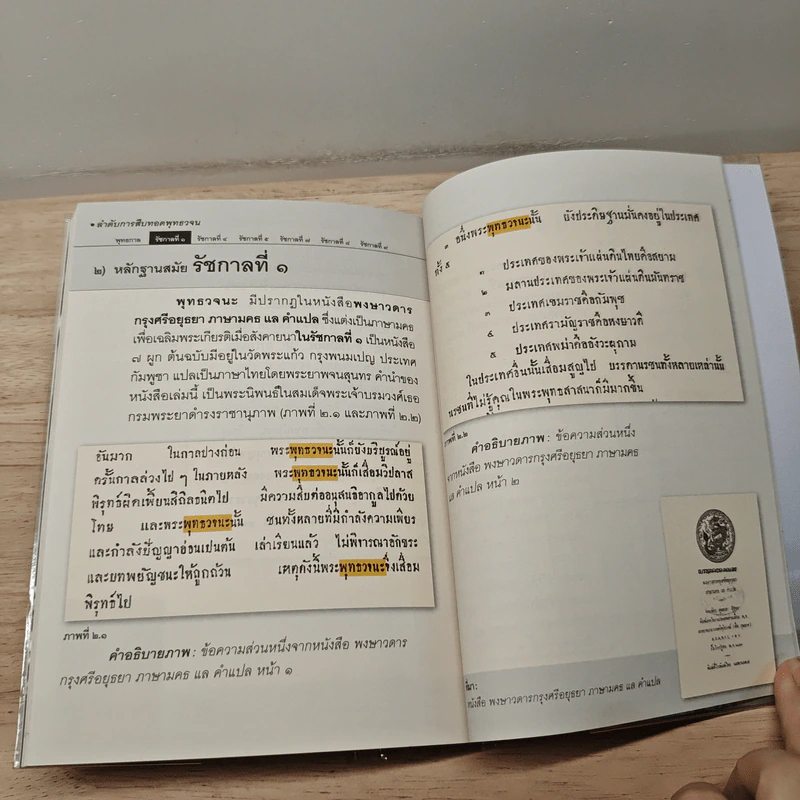 • ลำดับการสืบทอดพุทธวจน
พุทธกาล รัชกาลที่ ๑ รัชกาลที่ ๔ รัชกาลที่ ๕ รัชกาลที่ ๗ รัชกาลที่ ๘ รัชกาลที่ ๙
๒) หลักฐานสมัย รัชกาลที่ ๑
พุทธวจนะ มีปรากฏในหนังสือพงษาวดาร
กรุงศรีอยุธยา ภาษามคธ แล คำแปล ซึ่งแต่งเป็นภาษามคธ
เพื่อเฉลิมพระเกียรติเมื่อสังคายนาในรัชกาลที่ ๑ เป็นหนังสือ
๗ ผูก ต้นฉบับมีอยู่ในวัดพระแก้ว กรุงพนมเปญ ประเทศ
กัมพูชา แปลเป็นภาษาไทยโดยพระยาพจนสุนทร คำนำของ
หนังสือเล่มนี้ เป็นพระนิพนธ์ในสมเด็จพระเจ้าบรมวงศ์เธอ
กรมพระยาดำรงราชานุภาพ (ภาพที่ ๒.๑ และภาพที่ ๒.๒)
อันมาก ในกาลปางก่อน พระพุทธวจนะนั้นก็ยังบริบูรณ์อยู่
ครั้นกาลล่วงไป ๆ ในภายหลัง พระพุทธวจนะนั้นก็เสื่อมวิปลาส
พิรุทธ์ผิดเพี้ยนสิถิลธนิตไป มีความสืบต่ออนุสนธิอากูลไปด้วย
โทษ และพระพุทธวจนะนั้น ชนทั้งหลายที่มีกำลังความเพียร
และกำลังปัญญาอ่อนเปนต้น เล่าเรียนแล้ว ไม่พิจารณาอักขระ
และบทพยัญชนะให้ถูกถ้วน เหตุดังนี้พระพุทธวจนะจึงเสื่อม
พิรุทธ์ไป
ภาพที่ ๒.๑
คำอธิบายภาพ : ข้อความส่วนหนึ่งจากหนังสือ พงษาวดาร
กรุงศรีอยุธยา ภาษามคธ แล คำแปล หน้า ๑
๑ อนึ่งพระพุทธวจนะนั้น ยังประดิษฐานมั่นคงอยู่ในประเทศ
ทั้ง ๕
๑ ประเทศของพระเจ้าแผ่นดินไทยคือสยาม
๒ มลานประเทศของพระเจ้าแผ่นดินมันทราช
๓ ประเทศเขมราชคือกัมพุช
๔ ประเทศรามัญราชคือหงษาวดี
๕ ประเทศพม่าคืออังวะภุกาม
ในประเทศอื่นนั้นเสื่อมสูญไป บรรดานรชนทั้งหลายเหล่านั้น
นรชนที่ไม่รู้คุณในพระพุทธสาสนาก็มีมากขึ้น
ภาพที่ ๒.๒
คำอธิบายภาพ : ข้อความส่วนหนึ่ง
จากหนังสือ พงษาวดารกรุงศรีอยุธยา ภาษามคธ
แล คำแปล หน้า ๒
ที่มา:
หนังสือ พงษาวดารกรุงศรีอยุธยา ภาษามคธ แล คำแปล